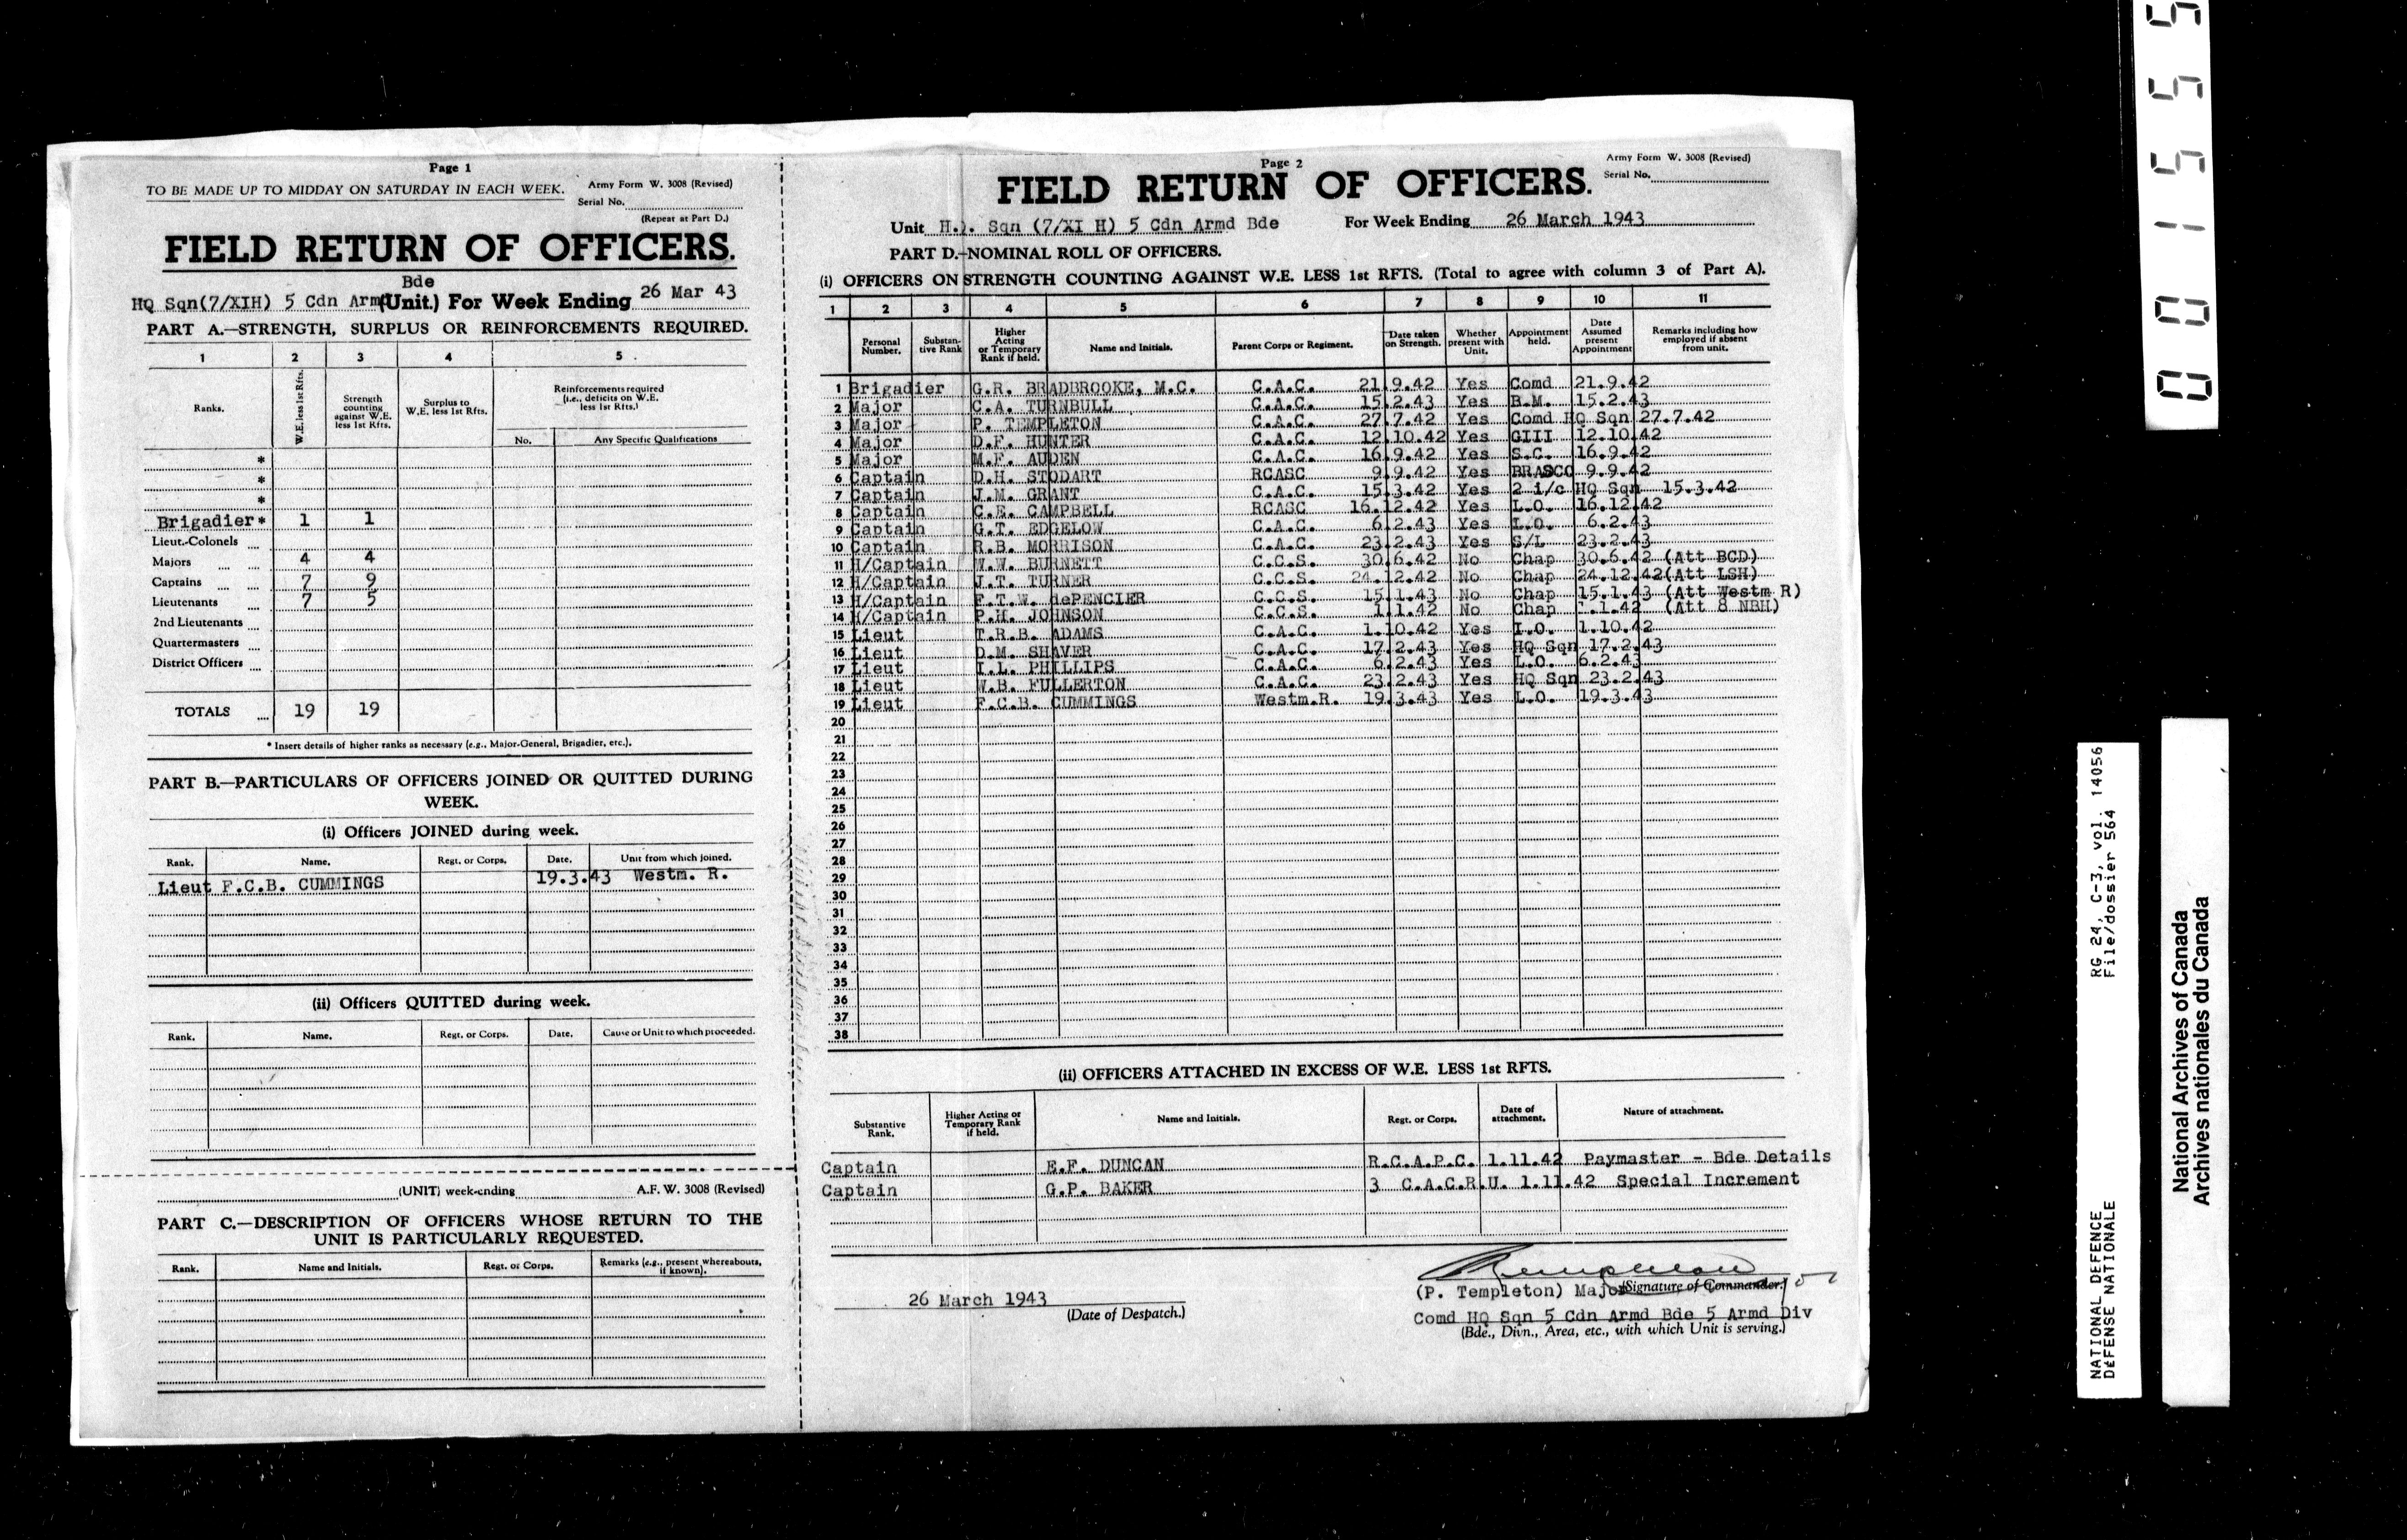 Page 1
TO BE MADE UP TO MIDDAY ON SATURDAY IN EACH WEEK.
Army Form W. 3008 (Revised)
Serial No.
(Repeat at Part D.)
FIELD RETURN OF OFFICERS.
Bde
HQ Sqn(7/XIH) 5 Cdn Arm(Unit.) For Week Ending 26 Mar 43
PART A.—STRENGTH, SURPLUS OR REINFORCEMENTS REQUIRED.
1 2 3 4 5
Ranks. W.E. less 1st Rfts. Strength counting against W.E. less 1st Rfts. Surplus to W.E. less 1st Rfts. Reinforcements required (i.e., deficits on W.E. less 1st Rfts.)
No. Any Specific Qualifications
*
*
*
Brigadier* 1 1
Lieut.-Colonels
Majors 4 4
Captains 7 9
Lieutenants 7 5
2nd Lieutenants
Quartermasters
District Officers
TOTALS 19 19
* Insert details of higher ranks as necessary (e.g., Major-General, Brigadier, etc.).
PART B.—PARTICULARS OF OFFICERS JOINED OR QUITTED DURING
WEEK.
(i) Officers JOINED during week.
Rank. Name. Regt. or Corps. Date. Unit from which joined.
Lieut F.C.B. CUMMINGS 19.3.43 Westm. R.
(ii) Officers QUITTED during week.
Rank. Name. Regt. or Corps. Date. Cause or Unit to which proceeded.
(UNIT) week-ending A.F. W. 3008 (Revised)
PART C.—DESCRIPTION OF OFFICERS WHOSE RETURN TO THE
UNIT IS PARTICULARLY REQUESTED.
Rank. Name and Initials. Regt. or Corps. Remarks (e.g., present whereabouts, if known).
Page 2
Army Form W. 3008 (Revised)
Serial No.
FIELD RETURN OF OFFICERS.
Unit H.). Sqn (7/XI H) 5 Cdn Armd Bde For Week Ending 26 March 1943
PART D.—NOMINAL ROLL OF OFFICERS.
(i) OFFICERS ON STRENGTH COUNTING AGAINST W.E. LESS 1st RFTS. (Total to agree with column 3 of Part A).
1 2 3 4 5 6 7 8 9 10 11
Personal Number. Substantive Rank Higher Acting or Temporary Rank if held. Name and Initials. Parent Corps or Regiment. Date taken on Strength. Whether present with Unit. Appointment held. Date Assumed present Appointment Remarks including how employed if absent from unit.
1 Brigadier G.R. BRADBROOKE, M.C. C.A.C. 21.9.42 Yes Comd 21.9.42
2 Major C.A. TURNBULL C.A.C. 15.2.43 Yes B.M. 15.2.43
3 Major P. TEMPLETON C.A.C. 27.7.42 Yes Comd HQ Sqn 27.7.42
4 Major D.F. HUNTER C.A.C. 12.10.42 Yes GIII 12.10.42
5 Major M.F. AUDEN C.A.C. 16.9.42 Yes S.C. 16.9.42
6 Captain D.H. STODART RCASC 9.9.42 Yes BRASCO 9.9.42
7 Captain J.M. GRANT C.A.C. 15.3.42 Yes 2 i/c HQ Sqn 15.3.42
8 Captain C.E. CAMPBELL RCASC 16.12.42 Yes L.O. 16.12.42
9 Captain G.T. EDGELOW C.A.C. 6.2.43 Yes L.O. 6.2.43
10 Captain R.B. MORRISON C.A.C. 23.2.43 Yes S/L 23.2.43
11 H/Captain W.W. BURNETT C.C.S. 30.6.42 No Chap 30.6.42 (Att BCD)
12 H/Captain J.T. TURNER C.C.S. 24.12.42 No Chap 24.12.42(Att LSH)
13 H/Captain F.T.W. dePENCIER C.C.S. 15.1.43 No Chap 15.1.43 (Att Westm R)
14 H/Captain P.H. JOHNSON C.C.S. 1.1.42 No Chap .1.42 (Att 8 NBH)
15 Lieut T.R.B. ADAMS C.A.C. 1.10.42 Yes I.O. 1.10.42
16 Lieut D.M. SHAVER C.A.C. 17.2.43 Yes HQ Sqn 17.2.43
17 Lieut I.L. PHILLIPS C.A.C. 6.2.43 Yes L.O. 6.2.43
18 Lieut W.B. FULLERTON C.A.C. 23.2.43 Yes HQ Sqn 23.2.43
19 Lieut F.C.B. CUMMINGS Westm.R. 19.3.43 Yes L.O. 19.3.43
20
21
22
23
24
25
26
27
28
29
30
31
32
33
34
35
36
37
38
(ii) OFFICERS ATTACHED IN EXCESS OF W.E. LESS 1st RFTS.
Substantive Rank. Higher Acting or Temporary Rank if held. Name and Initials. Regt. or Corps. Date of attachment. Nature of attachment.
Captain E.F. DUNCAN R.C.A.P.C. 1.11.42 Paymaster - Bde Details
Captain G.P. BAKER 3 C.A.C.R.U. 1.11.42 Special Increment
26 March 1943
(Date of Despatch.)
(P. Templeton) Major (Signature of Commander.)
Comd HQ Sqn 5 Cdn Armd Bde 5 Armd Div
(Bde., Divn., Area, etc., with which Unit is serving.)
001555
RG 24, C-3, vol. 14056
File/dossier 564
NATIONAL DEFENCE
DÉFENSE NATIONALE
National Archives of Canada
Archives nationales du Canada